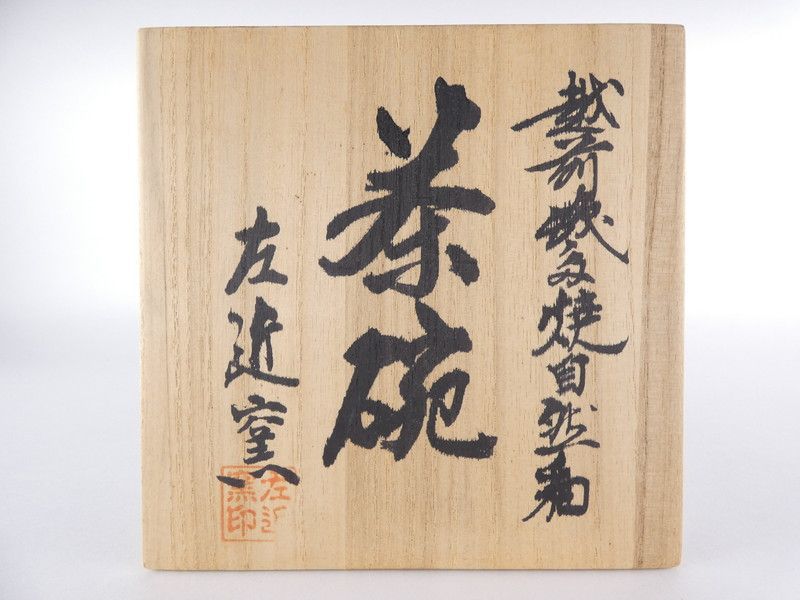 越前 焼自然釉
茶碗
左近窯
左近窯印